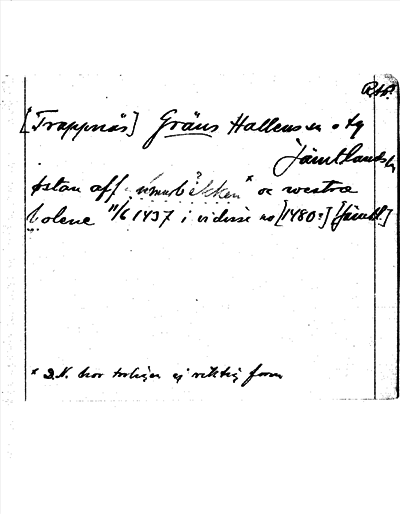 RAp.
[Trappnäs] Gräns Hallens sn o tg
Jämtlands l.
østan aff rbækken* oc wæstræ
bolene 11/6 1437 i vidisse no [1480?] [Jämtl.]
* D.N. har troligen ej riktig form